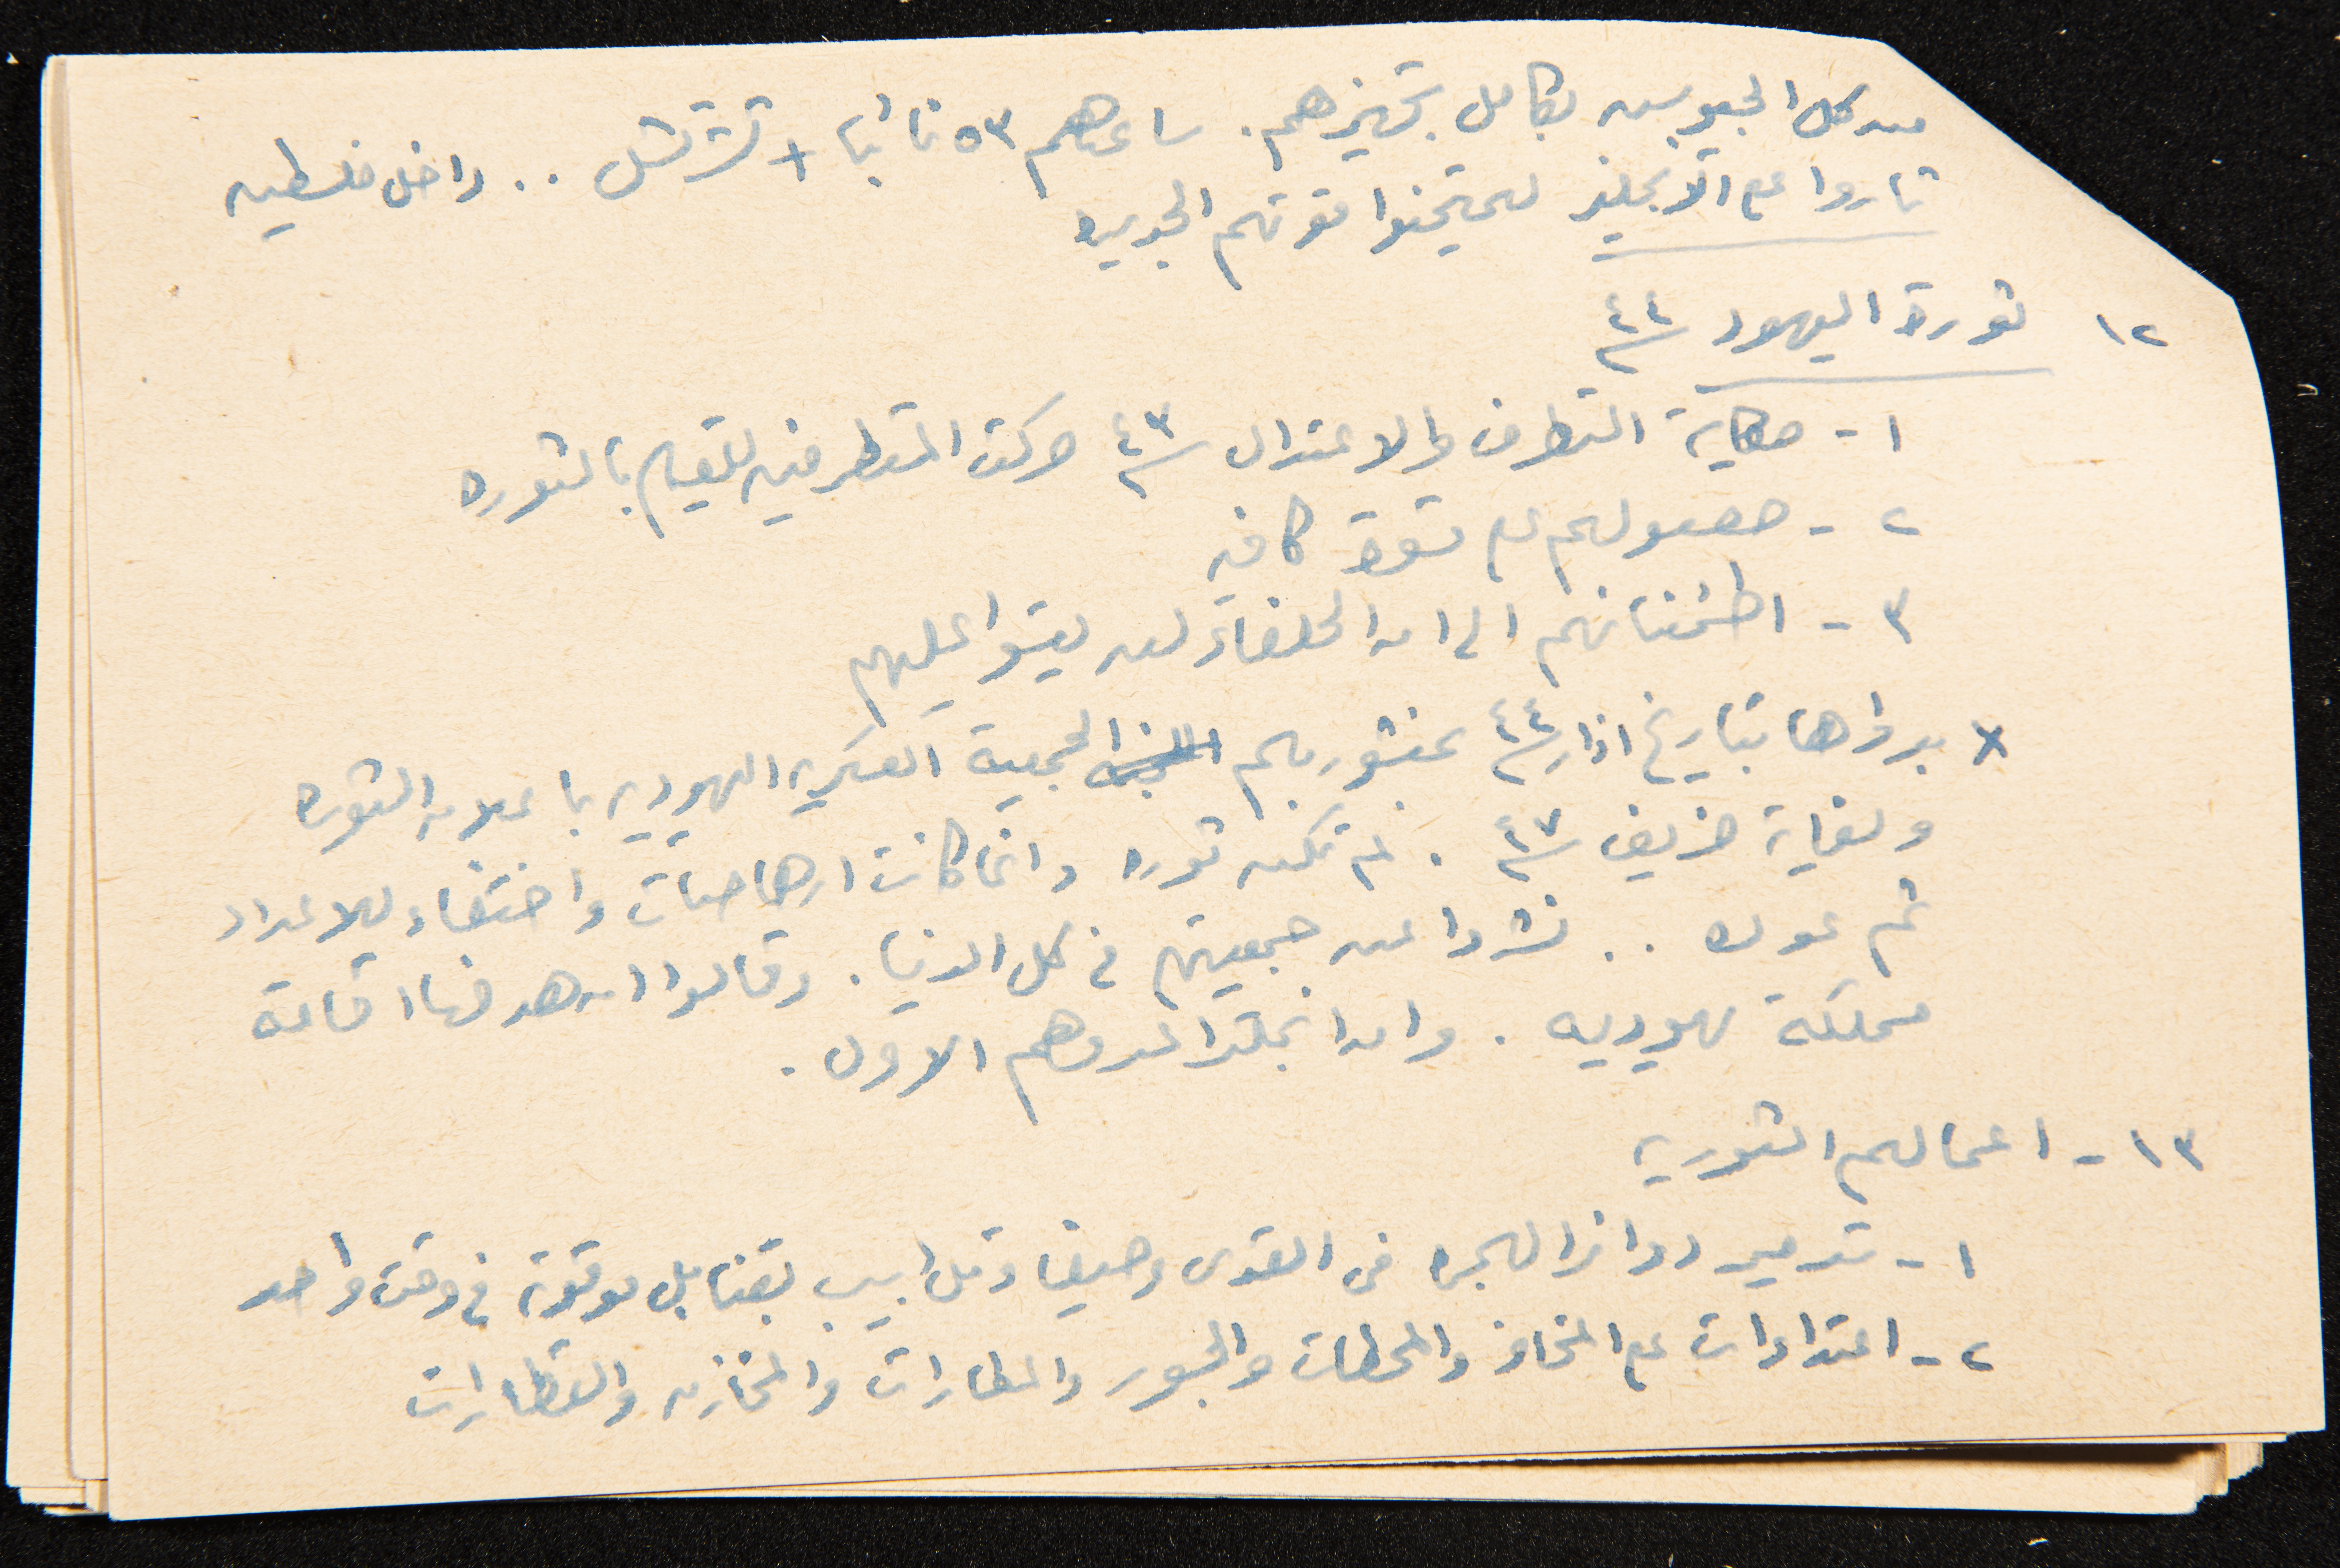 من كل الجيوش بكامل تجهيزهم. ساعدهم ٥٣ نائبا + تشرتشل .. داخل فلسطين
ثاروا على الانجليز ليمتحنوا قوتهم الجديده
١٢ ثورة اليهود سنة ٤٤
١ - حكاية التطرف والاعتدال سنة ٤٣ حركت المتطرفين للقيام بالثوره
٢ - حصولهم على قوة كافيه
٣ - اطمئنانهم الى ان الحلفاء لن يقسوا عليهم
x بدؤاها بتاريخ اذار سنة ٤٤ بمنشور باسم الجمعية العسكريه اليهوديه باعلان الثوره
ولغاية خريف سنة ٤٧ . لم تكن ثوره وانما كانت ارهاصات واختفاء للاعداد
ثم عوده .. نشروا عن جمعيتهم في كل الدنيا . وقالوا ان هدفها اقامة
مملكة يهوديه . وان انجلترا عدوهم الاول .
١٣ - اعمالهم الثوريه
١ - تدمير دوائر الهجره في القدس وحيفا وتل ابيب بقنابل موقوته في وقت واحد
٢ - اعتداءات على المخافر والمحطات والجسور والمطارات والمخازن والقطارات